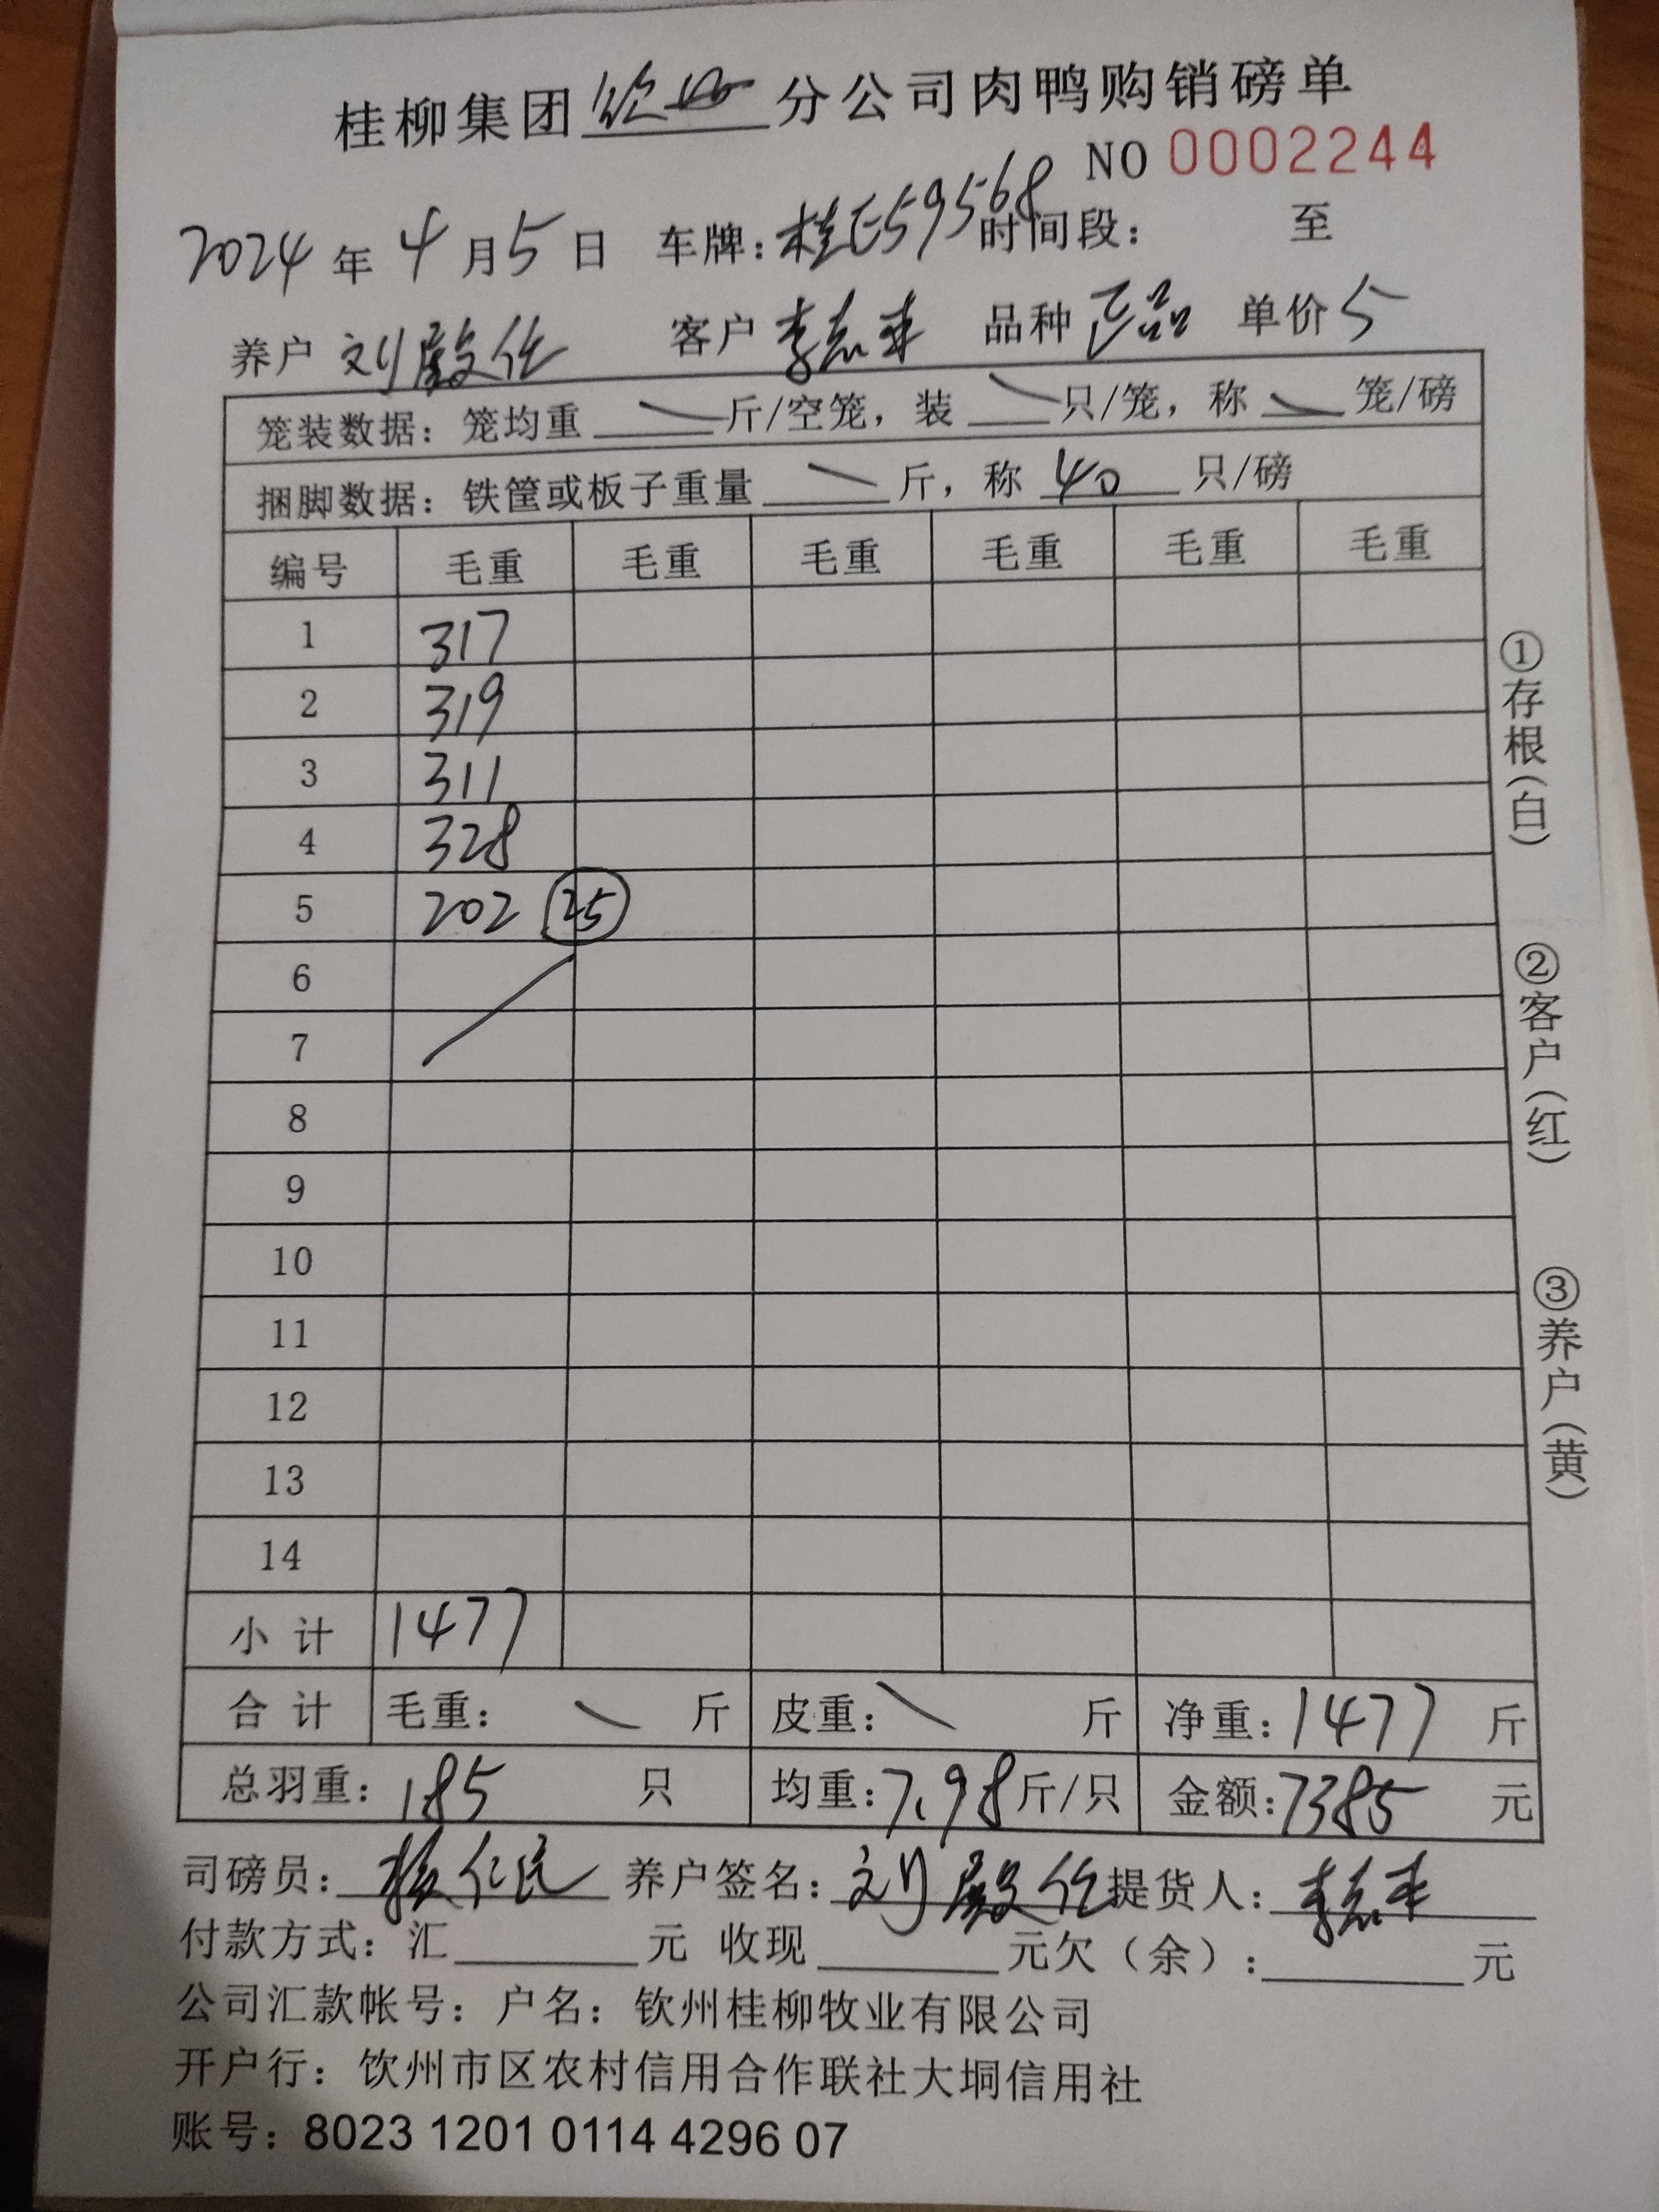 桂柳集团 钦州 分公司肉鸭购销磅单
NO 0002244
2024 年 4 月 5 日 车牌：桂E59568 时间段： 至
养户 刘殿任 客户 李志丰 品种 正品 单价 5
笼装数据：笼均重 斤/空笼，装 只/笼，称 笼/磅
捆脚数据：铁筐或板子重量 斤，称 40 只/磅
编号 毛重 毛重 毛重 毛重 毛重 毛重
1 317
2 319
3 311
4 328
5 202 25
6
7
8
9
10
11
12
13
14
小计 1477
合计 毛重： 斤 皮重： 斤 净重：1477 斤
总羽重：185 只 均重：7.98 斤/只 金额：7385 元
司磅员： 仁民 养户签名：刘殿任 提货人：李志丰
付款方式：汇 元 收现 元欠（余）： 元
公司汇款帐号：户名：钦州桂柳牧业有限公司
开户行：饮州市区农村信用合作联社大垌信用社
账号：8023 1201 0114 4296 07
①存根（白）
②客户（红）
③养户（黄）